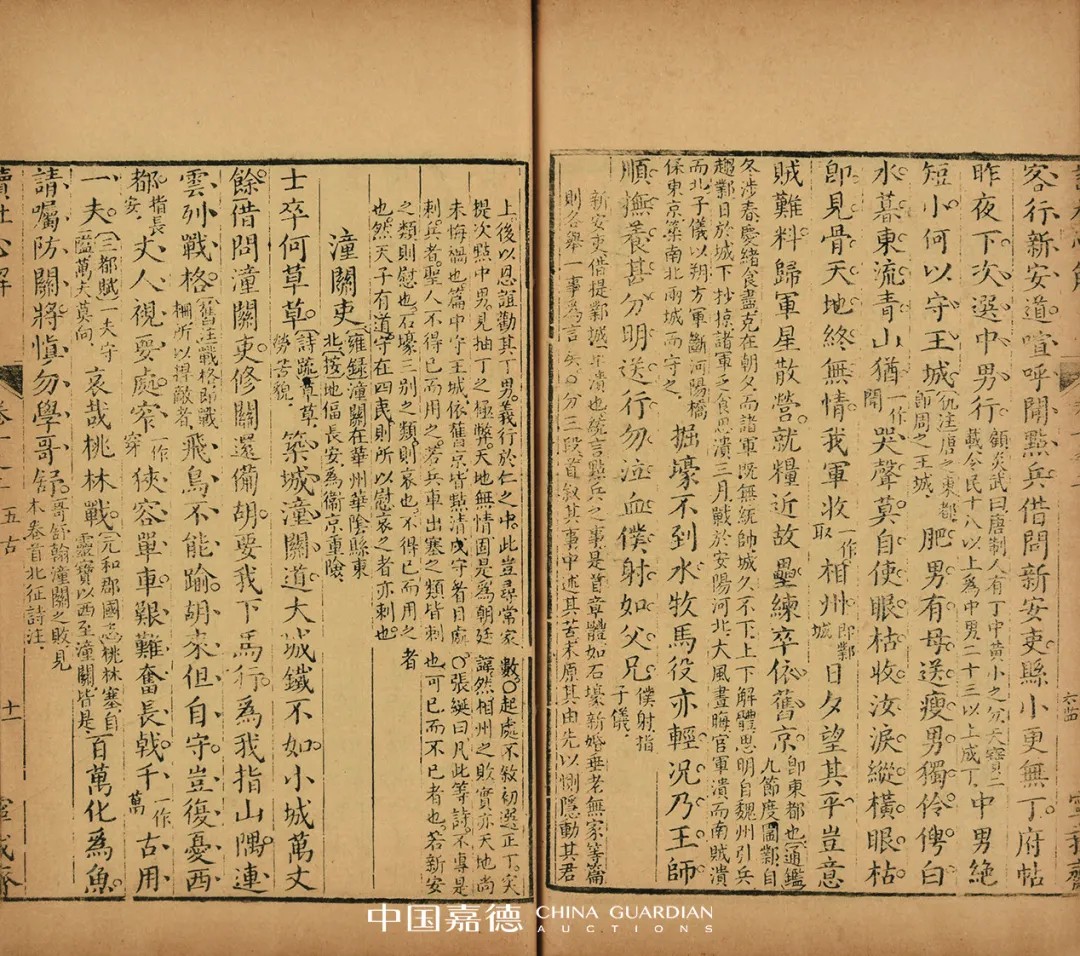 客行新安道喧呼聞點兵借問新安吏縣小更無丁府帖
昨夜下次選中男行顧炎武曰唐制人有丁中黃小之分天寶三載令民十八以上爲中男二十三以上成丁中男絶
短小何以守王城仇注唐之東都即周之王城肥男有母送瘦男獨伶俜白
水暮東流青山猶一作聞哭聲莫自使眼枯收汝淚縱橫眼枯
卽見骨天地終無情我軍收一作取相州即鄴城日夕望其平豈意
賊難料歸軍星散營就糧近故壘練卒依舊京卽東都也通鑑九節度圍鄴自
冬涉春慶緒食盡克在朝夕而諸軍旣無統帥城久不下上下解體思明自魏州引兵
趨鄴日於城下抄掠諸軍乏食思潰三月戰於安陽河北大風晝晦官軍潰而南賊潰
而北子儀以朔方軍斷河陽橋
保東京築南北兩城而守之掘壕不到水牧馬役亦輕況乃王師
順撫養甚分明送行勿泣血僕射如父兄僕射指子儀
新安吏借提鄴城軍潰也統言點兵之事是首章體如石壕新婚垂老無家等篇
則各舉一事爲言矣分三段首敘其事中述其苦末原其由先以惻隱動其君
上後以恩誼勸其丁男義行於仁之中此豈尋常家數起處不敘初選正丁突
提次點中男見抽丁之極弊天地無情固是爲朝廷諱然相州之敗實亦天地尚
未悔禍也篇中守王城依舊京皆點清戍守者目處張綖曰凡此等詩不專是
刺兵者聖人不得已而用之若兵車出塞之類皆刺也可已而不已者也若新安
之類則慰也石壕三別之類則哀也不得已而用之者
也然天子有道守在四夷則所以慰哀之者亦刺也
潼關吏雍錄潼關在華州華陰縣東北按地偪長安爲衞京重險
士卒何草草詩疏草草勞苦貌築城潼關道大城鐵不如小城萬丈
餘借問潼關吏修關還備胡要我下馬行爲我指山隅連
雲列戰格舊注戰格即戰柵所以捍敵者飛鳥不能踰胡來但自守豈復憂西
都指長安丈人視要處窄一作穿狹容單車艱難奮長戟千一作萬古用
一夫三都賦一夫守隘萬夫莫向哀哉桃林戰元和郡國志桃林塞自靈寶以西至潼關皆是百萬化爲魚
請囑防關將愼勿學哥舒哥舒翰潼關之敗見本卷首北征詩注
讀杜心解
卷一之二
五古
十一
寧我齋
中国嘉德
CHINA GUARDIAN
AUCTIONS